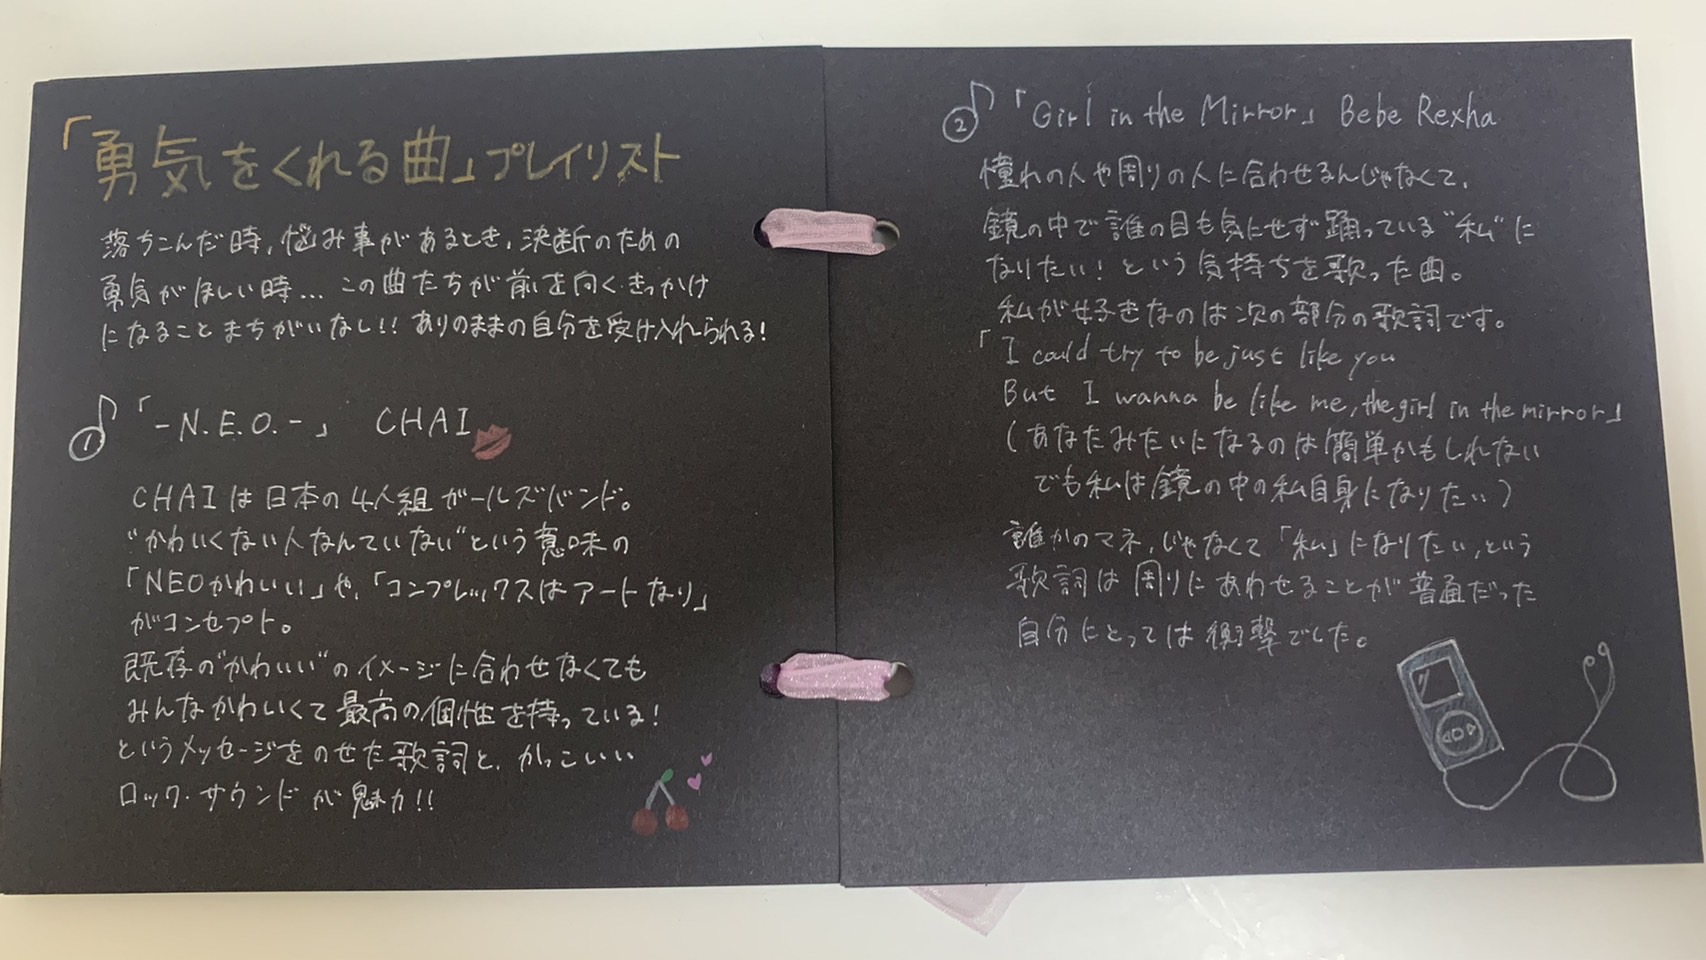 「勇気をくれる曲」プレイリスト
落ちこんだ時,悩み事があるとき,決断のための
勇気がほしい時...この曲たちが前を向くきっかけ
になることまちがいなし!!ありのままの自分を受け入れられる!
①「-N.E.O.-」 CHAI
CHAIは日本の4人組ガールズバンド。
"かわいくない人なんていない"という意味の
「NEOかわいい」や,「コンプレックスはアートなり」
がコンセプト。
既存の"かわいい"のイメージに合わせなくても
みんなかわいくて最高の個性を持っている!
というメッセージをのせた歌詞と,かっこいい
ロック・サウンドが魅力!!
②「Girl in the Mirror」 Bebe Rexha
憧れの人や周りの人に合わせるんじゃなくて,
鏡の中で誰の目も気にせず踊っている"私"に
なりたい!という気持ちを歌った曲。
私が好きなのは次の部分の歌詞です。
「I could try to be just like you
But I wanna be like me, the girl in the mirror」
(あなたみたいになるのは簡単かもしれない
でも私は鏡の中の私自身になりたい)
誰かのマネ,じゃなくて「私」になりたい,という
歌詞は周りにあわせることが普通だった
自分にとっては衝撃でした。